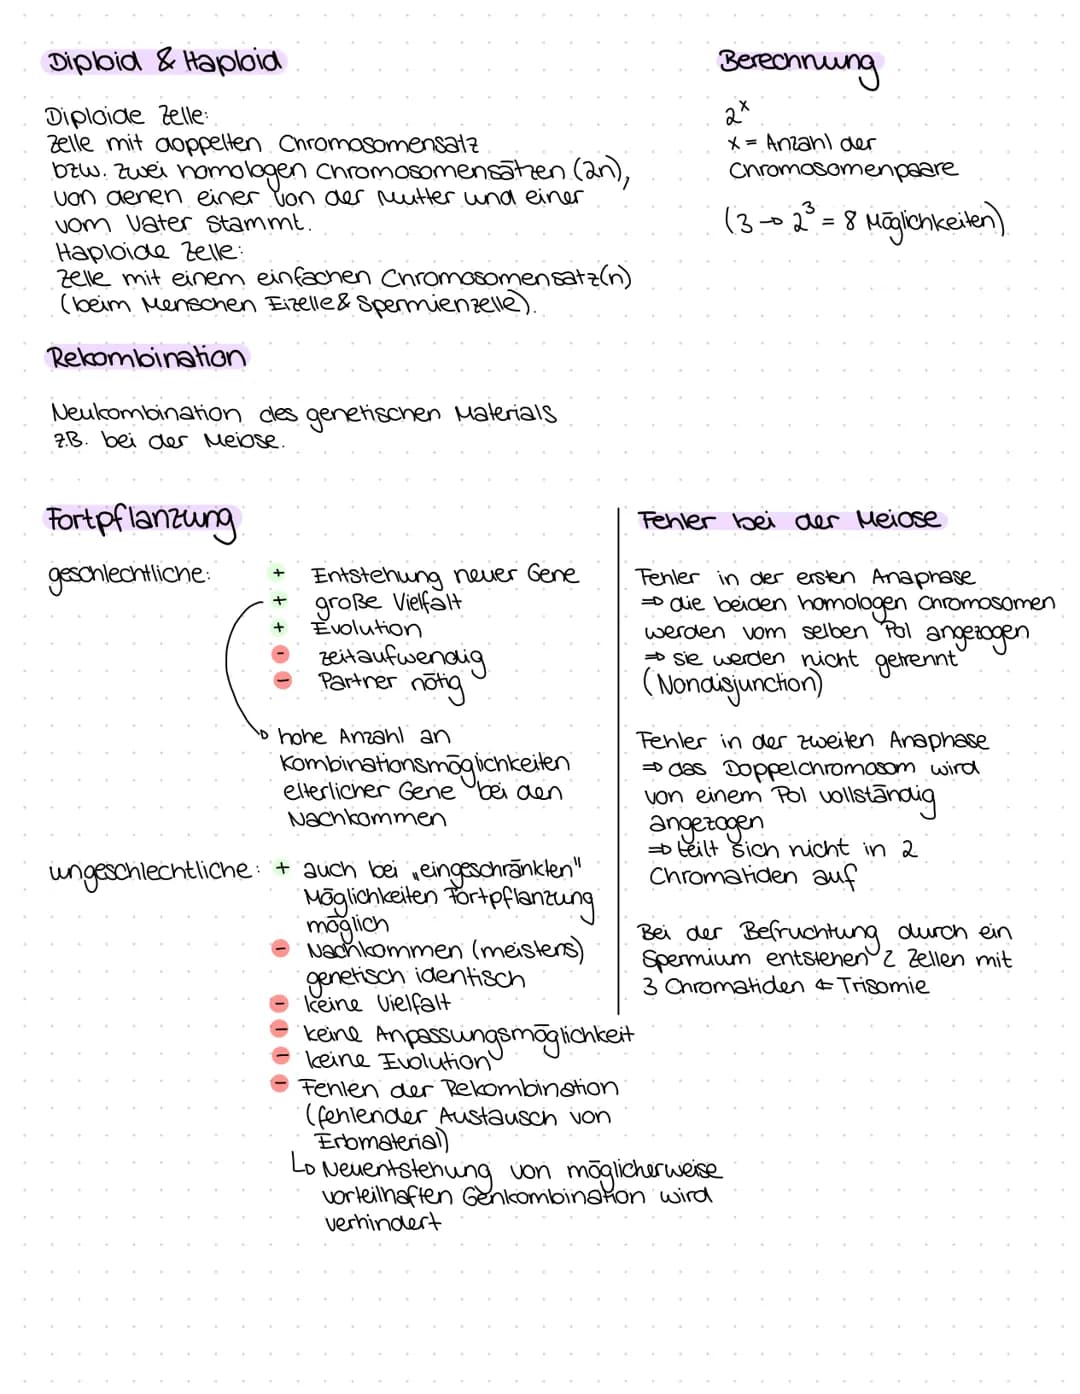 Diploid & Haploid
Diploide Zelle:
Zelle mit doppelten Chromosomensatz
bzw. zwei homologen Chromosomensätzen (2n),
von denen einer von der Mutter und einer
vom Vater stammt.
Haploide Zelle:
Zelle mit einem einfachen Chromosomensatz(n)
(beim Menschen Eizelle & Spermienzelle).
Berechnung
2^x
x = Anzahl der
Chromosomenpaare
(3 → 2³ = 8 Möglichkeiten)
Rekombination
Neukombination des genetischen Materials
z.B. bei der Meiose.
Fortpflanzung
geschlechtliche:
+ Entstehung neuer Gene
+ große Vielfalt
+ Evolution
- zeitaufwendig
- Partner nötig
→ hohe Anzahl an
Kombinationsmöglichkeiten
elterlicher Gene bei den
Nachkommen
ungeschlechtliche: + auch bei „eingeschränkten"
Möglichkeiten Fortpflanzung
möglich
- Nachkommen (meistens)
genetisch identisch
- keine Vielfalt
- keine Anpassungsmöglichkeit
- keine Evolution
- Fehlen der Rekombination
(fehlender Austausch von
Erbmaterial)
↳ Neuentstehung von möglicherweise
vorteilhaften Genkombination wird
verhindert
Fehler bei der Meiose
Fehler in der ersten Anaphase
⇒ die beiden homologen Chromosomen
werden vom selben Pol angezogen
⇒ sie werden nicht getrennt
(Nondisjunction)
Fehler in der zweiten Anaphase
⇒ das Doppelchromosom wird
von einem Pol vollständig
angezogen
⇒ teilt sich nicht in 2
Chromatiden auf
Bei der Befruchtung durch ein
Spermium entstehen 2 Zellen mit
3 Chromatiden ⇐ Trisomie